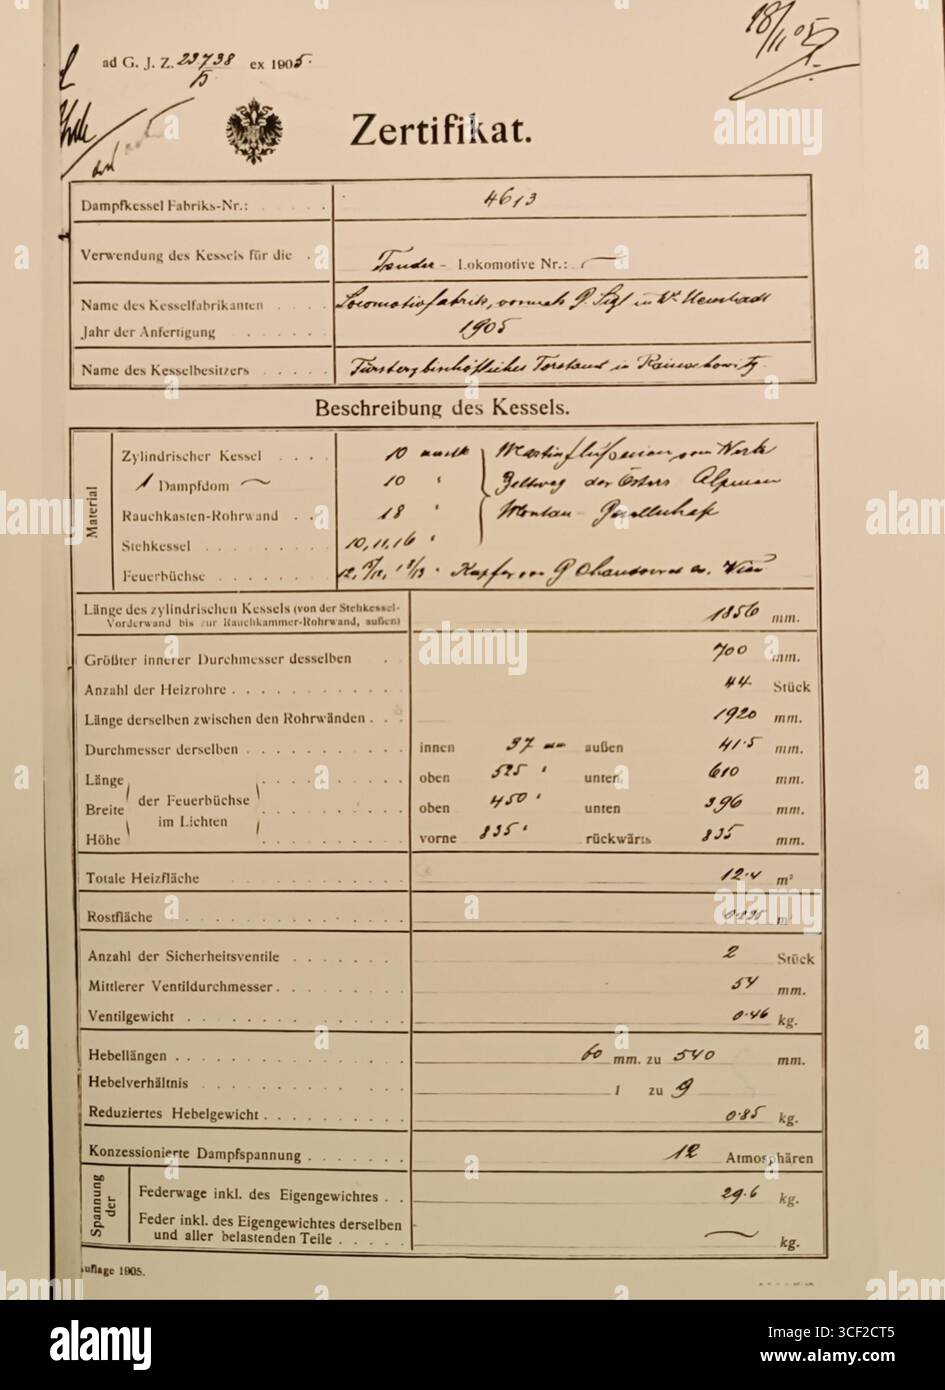 ad G. J. Z. 23738/5 ex 1905.
18/11 05
Zertifikat.
Dampfkessel Fabriks-Nr.: 4613
Verwendung des Kessels für die Tender - Lokomotive Nr.: —
Name des Kesselfabrikanten Locomotivfabrik, vormals G. Sigl in Wr. Neustadt
Jahr der Anfertigung 1905
Name des Kesselbesitzers Fürsterzbischöfliches Forstamt in
Beschreibung des Kessels.
Material
Zylindrischer Kessel 10 Martinflußeisen vom Werke
1 Dampfdom 10 " Zeltweg der Österr. Alpinen
Rauchkasten-Rohrwand 18 " Montan-Gesellschaft
Stehkessel 10, 11, 16 "
Feuerbüchse Kupfer von Wien
Länge des zylindrischen Kessels (von der Stehkessel- 1856 mm.
Vorderwand bis zur Rauchkammer-Rohrwand, außen)
Größter innerer Durchmesser desselben 700 mm.
Anzahl der Heizrohre 44 Stück
Länge derselben zwischen den Rohrwänden 1920 mm.
Durchmesser derselben innen 37 mm außen 41·5 mm.
Länge oben 525 " unten 610 mm.
Breite der Feuerbüchse im Lichten oben 450 " unten 396 mm.
Höhe vorne 835 " rückwärts 835 mm.
Totale Heizfläche 12·4 m²
Rostfläche m²
Anzahl der Sicherheitsventile 2 Stück
Mittlerer Ventildurchmesser 54 mm.
Ventilgewicht 0·46 kg.
Hebellängen 60 mm. zu 540 mm.
Hebelverhältnis 1 zu 9
Reduziertes Hebelgewicht 0·85 kg.
Konzessionierte Dampfspannung 12 Atmosphären
Spannung der
Federwage inkl. des Eigengewichtes 29·6 kg.
Feder inkl. des Eigengewichtes derselben
und aller belastenden Teile — kg.
uflage 1905.
alamy
Image ID: 3CF2CT5
www.alamy.com